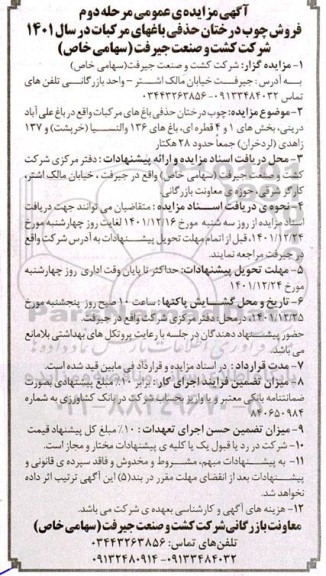 آگهی مزایده ی عمومی مرحله دوم
فروش چوب درختان حذفی باغهای مرکبات در سال ۱۴۰۱
شرکت کشت و صنعت جیرفت (سهامی خاص)
۱- مزایده گزار: شرکت کشت و صنعت جیرفت(سهامی خاص)
به آدرس: جیرفت خیابان مالک اشتر - واحد بازرگانی تلفن های
تماس ۰۹۱۳۳۴۸۴۰۳۲-۰۳۴۴۳۲۶۳۸۵۶
۲- موضوع مزایده: چوب درختان حذفی باغ های مرکبات واقع در باغ علی آباد
درینی، بخش های ۱ و ۴ قطره ای، باغ های ۱۳۶ والنسیا (خربشت) و ۱۳۷
زاهدی (لردخزان) جمعاً حدود ۲۸ هکتار
۳- محل دریافت اسناد مزایده و ارائه پیشنهادات: دفتر مرکزی شرکت
کشت و صنعت جیرفت (سهامی خاص) واقع در جیرفت، خیابان مالک اشتر،
کارگر شرقی حوزه ی معاونت بازرگانی
۴- نحوه ی دریافت اسناد مزایده: متقاضیان می توانند جهت دریافت
اسناد مزایده از روز سه شنبه مورخ ۱۴۰۱/۱۲/۱۶ لغایت روز چهارشنبه مورخ
۱۴۰۱/۱۲/۲۴، قبل از اتمام مهلت تحویل پیشنهادات به آدرس شرکت واقع
در جیرفت مراجعه نمایند.
۵- مهلت تحویل پیشنهادات: حداکثر تا پایان وقت اداری روز چهارشنبه
مورخ ۱۴۰۱/۱۲/۲۴
۶- تاریخ و محل گشایش پاکتها: ساعت ۱۰ صبح روز پنجشنبه مورخ
۱۴۰۱/۱۲/۲۵ در محل دفتر مرکزی شرکت واقع در جیرفت.
حضور پیشنهاد دهندگان در جلسه با رعایت پروتکل های بهداشتی بلامانع
می باشد.
۷- مدت قرارداد: در اسناد مزایده و قرارداد فی مابین قید شده است.
۸- میزان تضمین فرآیند اجرای کار: برابر ۱۰٪ مبلغ پیشنهادی بصورت
ضمانتنامه بانکی معتبر و یا واریز بحساب شرکت در بانک کشاورزی به شماره
۸۴۰۶۵۰۹۸۴
۹- میزان تضمین حسن اجرای تعهدات: ۱۰٪ مبلغ کل پیشنهاد قیمت
۱۰- شرکت در رد یا قبول یک یا کلیه ی پیشنهادات مختار و مجاز است.
۱۱- به پیشنهادات مبهم، مشروط و مخدوش و فاقد سپرده ی قانونی و
پیشنهادات بعد از انقضای مهلت مقرر در بند(۵) این آگهی ترتیب اثر داده
نخواهد شد.
۱۲- هزینه های آگهی و کارشناسی بعهده ی شرکت می باشد.
معاونت بازرگانی شرکت کشت و صنعت جیرفت (سهامی خاص)
تلفن های تماس: ۰۳۴۴۳۲۶۳۸۵۶
۰۹۱۳۳۴۸۴۰۳۲-۰۹۱۳۲۴۸۰۹۱۴